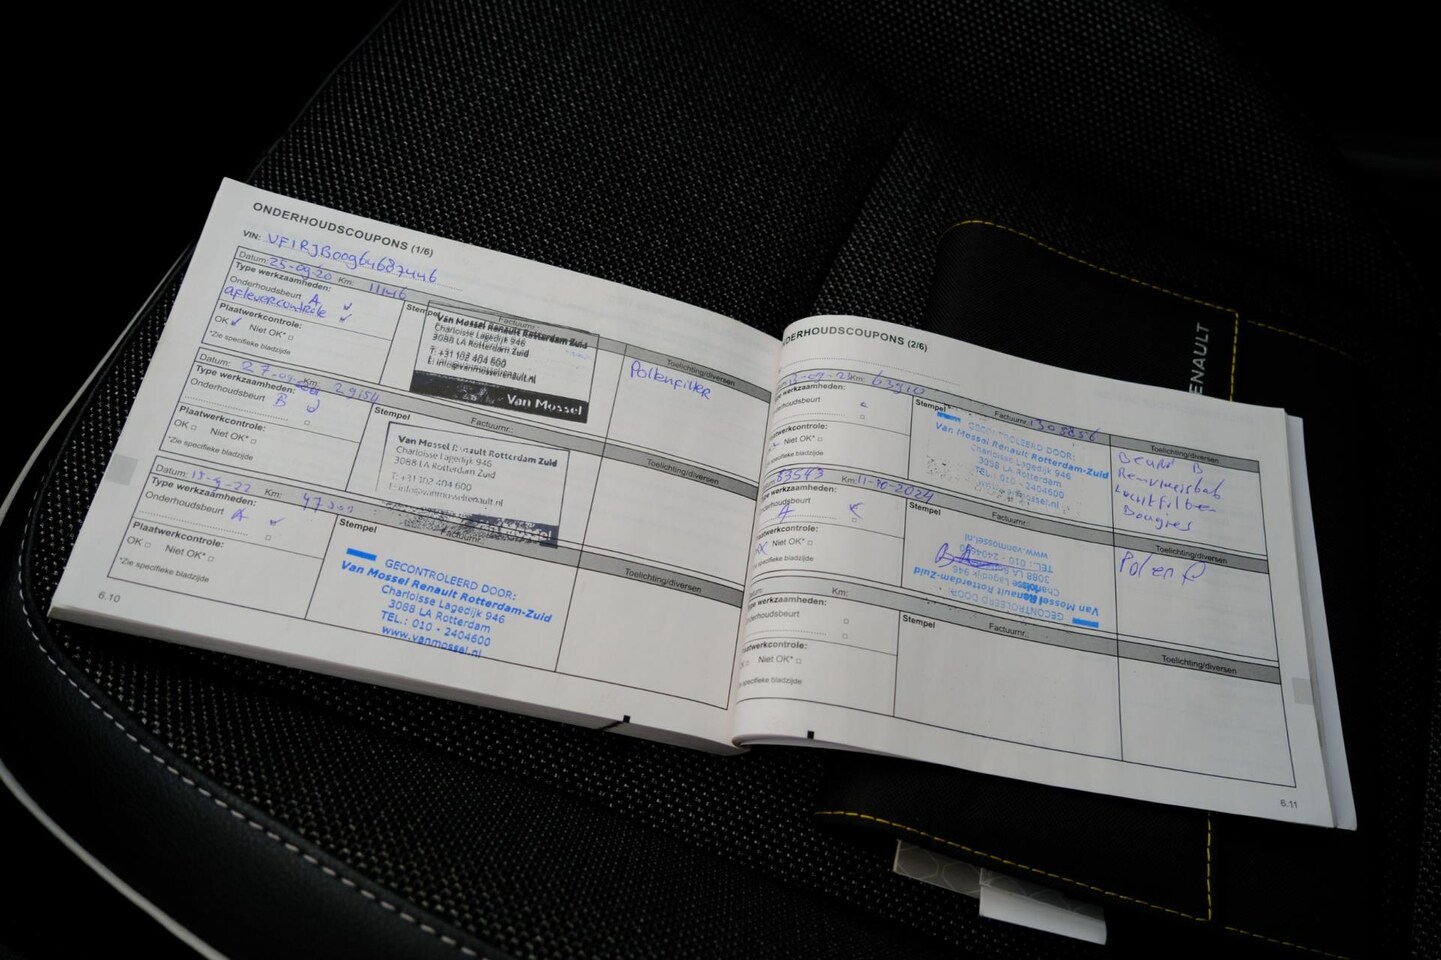 ONDERHOUDSCOUPONS (1/6)
VIN: VF1RJB00964687446
Datum: 25-09-20 Km: 11146
Type werkzaamheden:
Onderhoudsbeurt A
aflevercontrole
Plaatwerkcontrole:
OK Niet OK*
*Zie specifieke bladzijde
Stempel Factuurnr.:
Van Mossel Renault Rotterdam Zuid
Charloisse Lagedijk 946
3088 LA Rotterdam
T: +31 102 404 600
E: info@vanmosselrenault.nl
Van Mossel
Toelichting/diversen
Pollenfilter
Datum: Km: 29154
Type werkzaamheden:
Onderhoudsbeurt B
Plaatwerkcontrole:
OK Niet OK*
*Zie specifieke bladzijde
Stempel Factuurnr.:
Van Mossel Renault Rotterdam Zuid
Charloisse Lagedijk 946
3088 LA Rotterdam
T: +31 102 404 600
E: info@vanmosselrenault.nl
Toelichting/diversen
Datum: Km:
Type werkzaamheden:
Onderhoudsbeurt A
Plaatwerkcontrole:
OK Niet OK*
*Zie specifieke bladzijde
Stempel Factuurnr.:
GECONTROLEERD DOOR:
Van Mossel Renault Rotterdam-Zuid
Charloisse Lagedijk 946
3088 LA Rotterdam
TEL.: 010 - 2404600
www.vanmossel.nl
Toelichting/diversen
6.10
DERHOUDSCOUPONS (2/6)
Km: 63910
werkzaamheden:
Niet OK*
Stempel Factuurnr.: 1305856
GECONTROLEERD DOOR:
Van Mossel Renault Rotterdam-Zuid
Charloisse Lagedijk 946
3088 LA Rotterdam
TEL.: 010 - 2404600
Toelichting/diversen
Beurt B
Remvloeistof
Luchtfilter
Bougies
83543 Km: 11-10-2024
Type werkzaamheden:
A
Niet OK*
Stempel Factuurnr.:
GECONTROLEERD DOOR:
Van Mossel Renault Rotterdam-Zuid
Charloisse Lagedijk 946
3088 LA Rotterdam
TEL.: 010 - 2404600
www.vanmossel.nl
Toelichting/diversen
Pollen F
Km:
Type werkzaamheden:
Niet OK*
Stempel Factuurnr.:
Toelichting/diversen
6.11
ENAULT